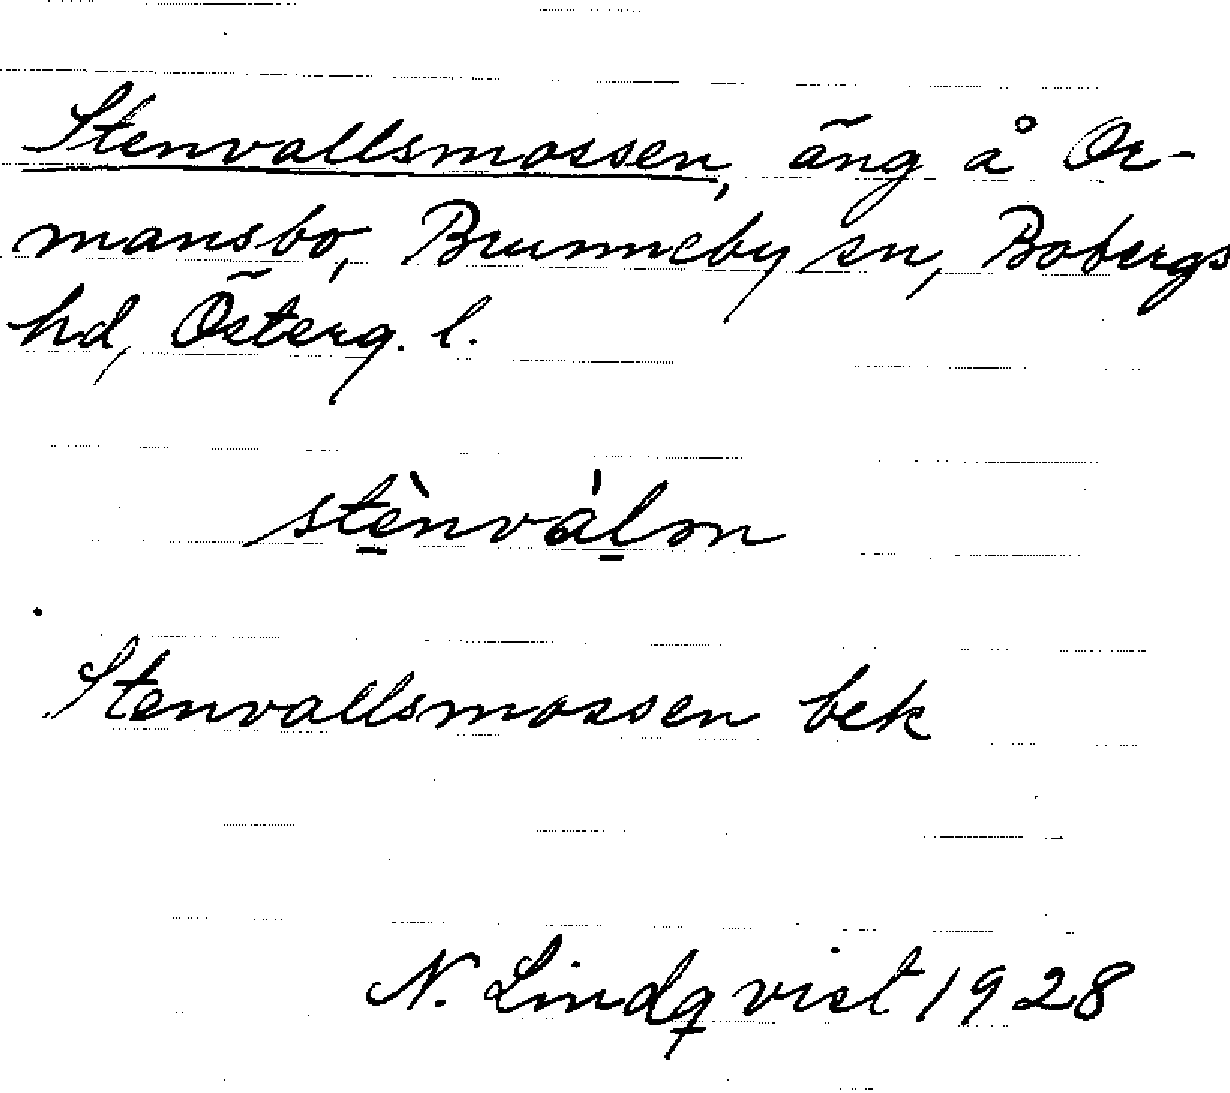 Stenvallsmossen, äng å Or-
mansbo, Brunneby sn, Bobergs
hd, Österg. l.
stènvàlən
Stenvallsmossen bek
N. Lindqvist 1928